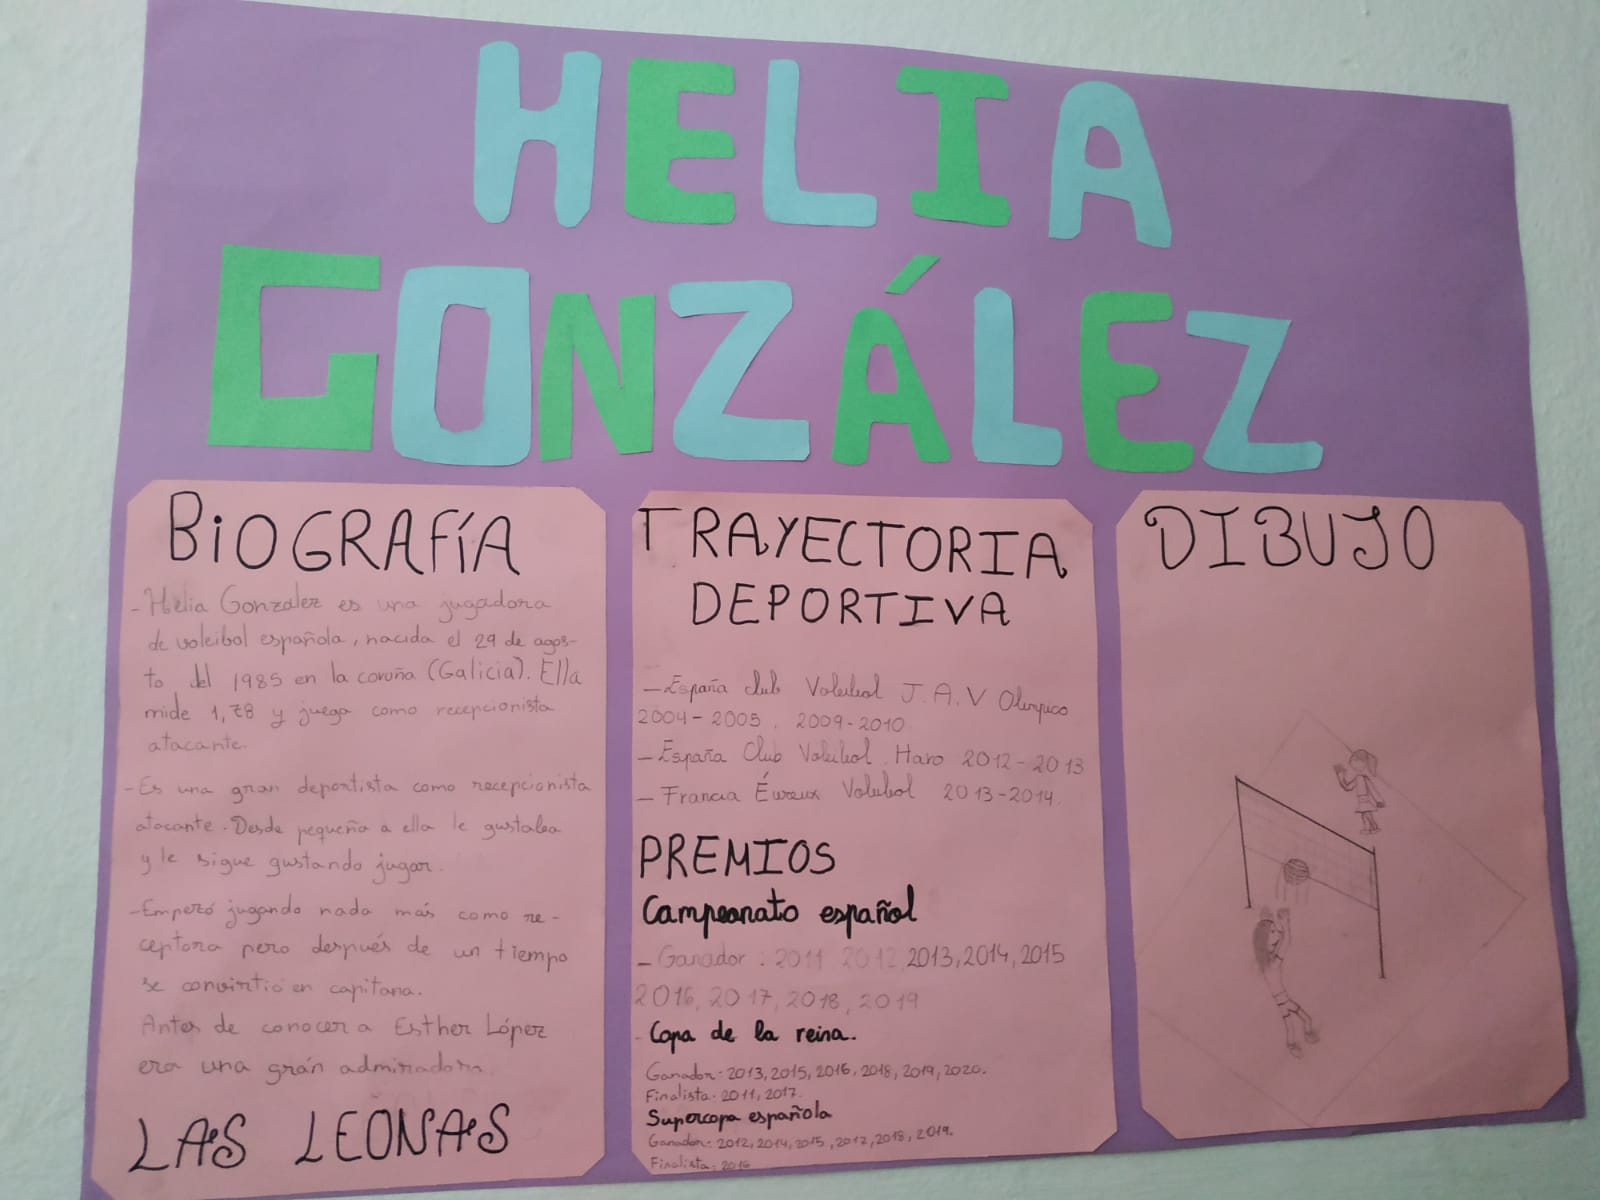 HELIA
GONZÁLEZ
BIOGRAFÍA
- Helia Gonzalez es una jugadora
de voleibol española, nacida el 29 de agos-
to del 1985 en la coruña (Galicia). Ella
mide 1,78 y juega como recepcionista
atacante.
- Es una gran deportista como recepcionista
atacante. Desde pequeña a ella le gustaba
y le sigue gustando jugar.
- Empezó jugando nada más como re-
ceptora pero después de un tiempo
se convirtió en capitana.
Antes de conocer a Esther López
era una gran admiradora.
LAS LEONAS
TRAYECTORIA
DEPORTIVA
- España club Voleibol J.A.V Olimpico
2004-2005, 2009-2010
- España Club Voleibol Haro 2012-2013
- Francia Évreux Voleibol 2013-2014.
PREMIOS
Campeonato español
- Ganador: 2011 2012, 2013, 2014, 2015
2016, 2017, 2018, 2019
Copa de la reina.
Ganador: 2013, 2015, 2016, 2018, 2019, 2020.
Finalista: 2011, 2017.
Supercopa española
Ganador: 2012, 2014, 2015, 2017, 2018, 2019.
Finalista: 2016
DIBUJO